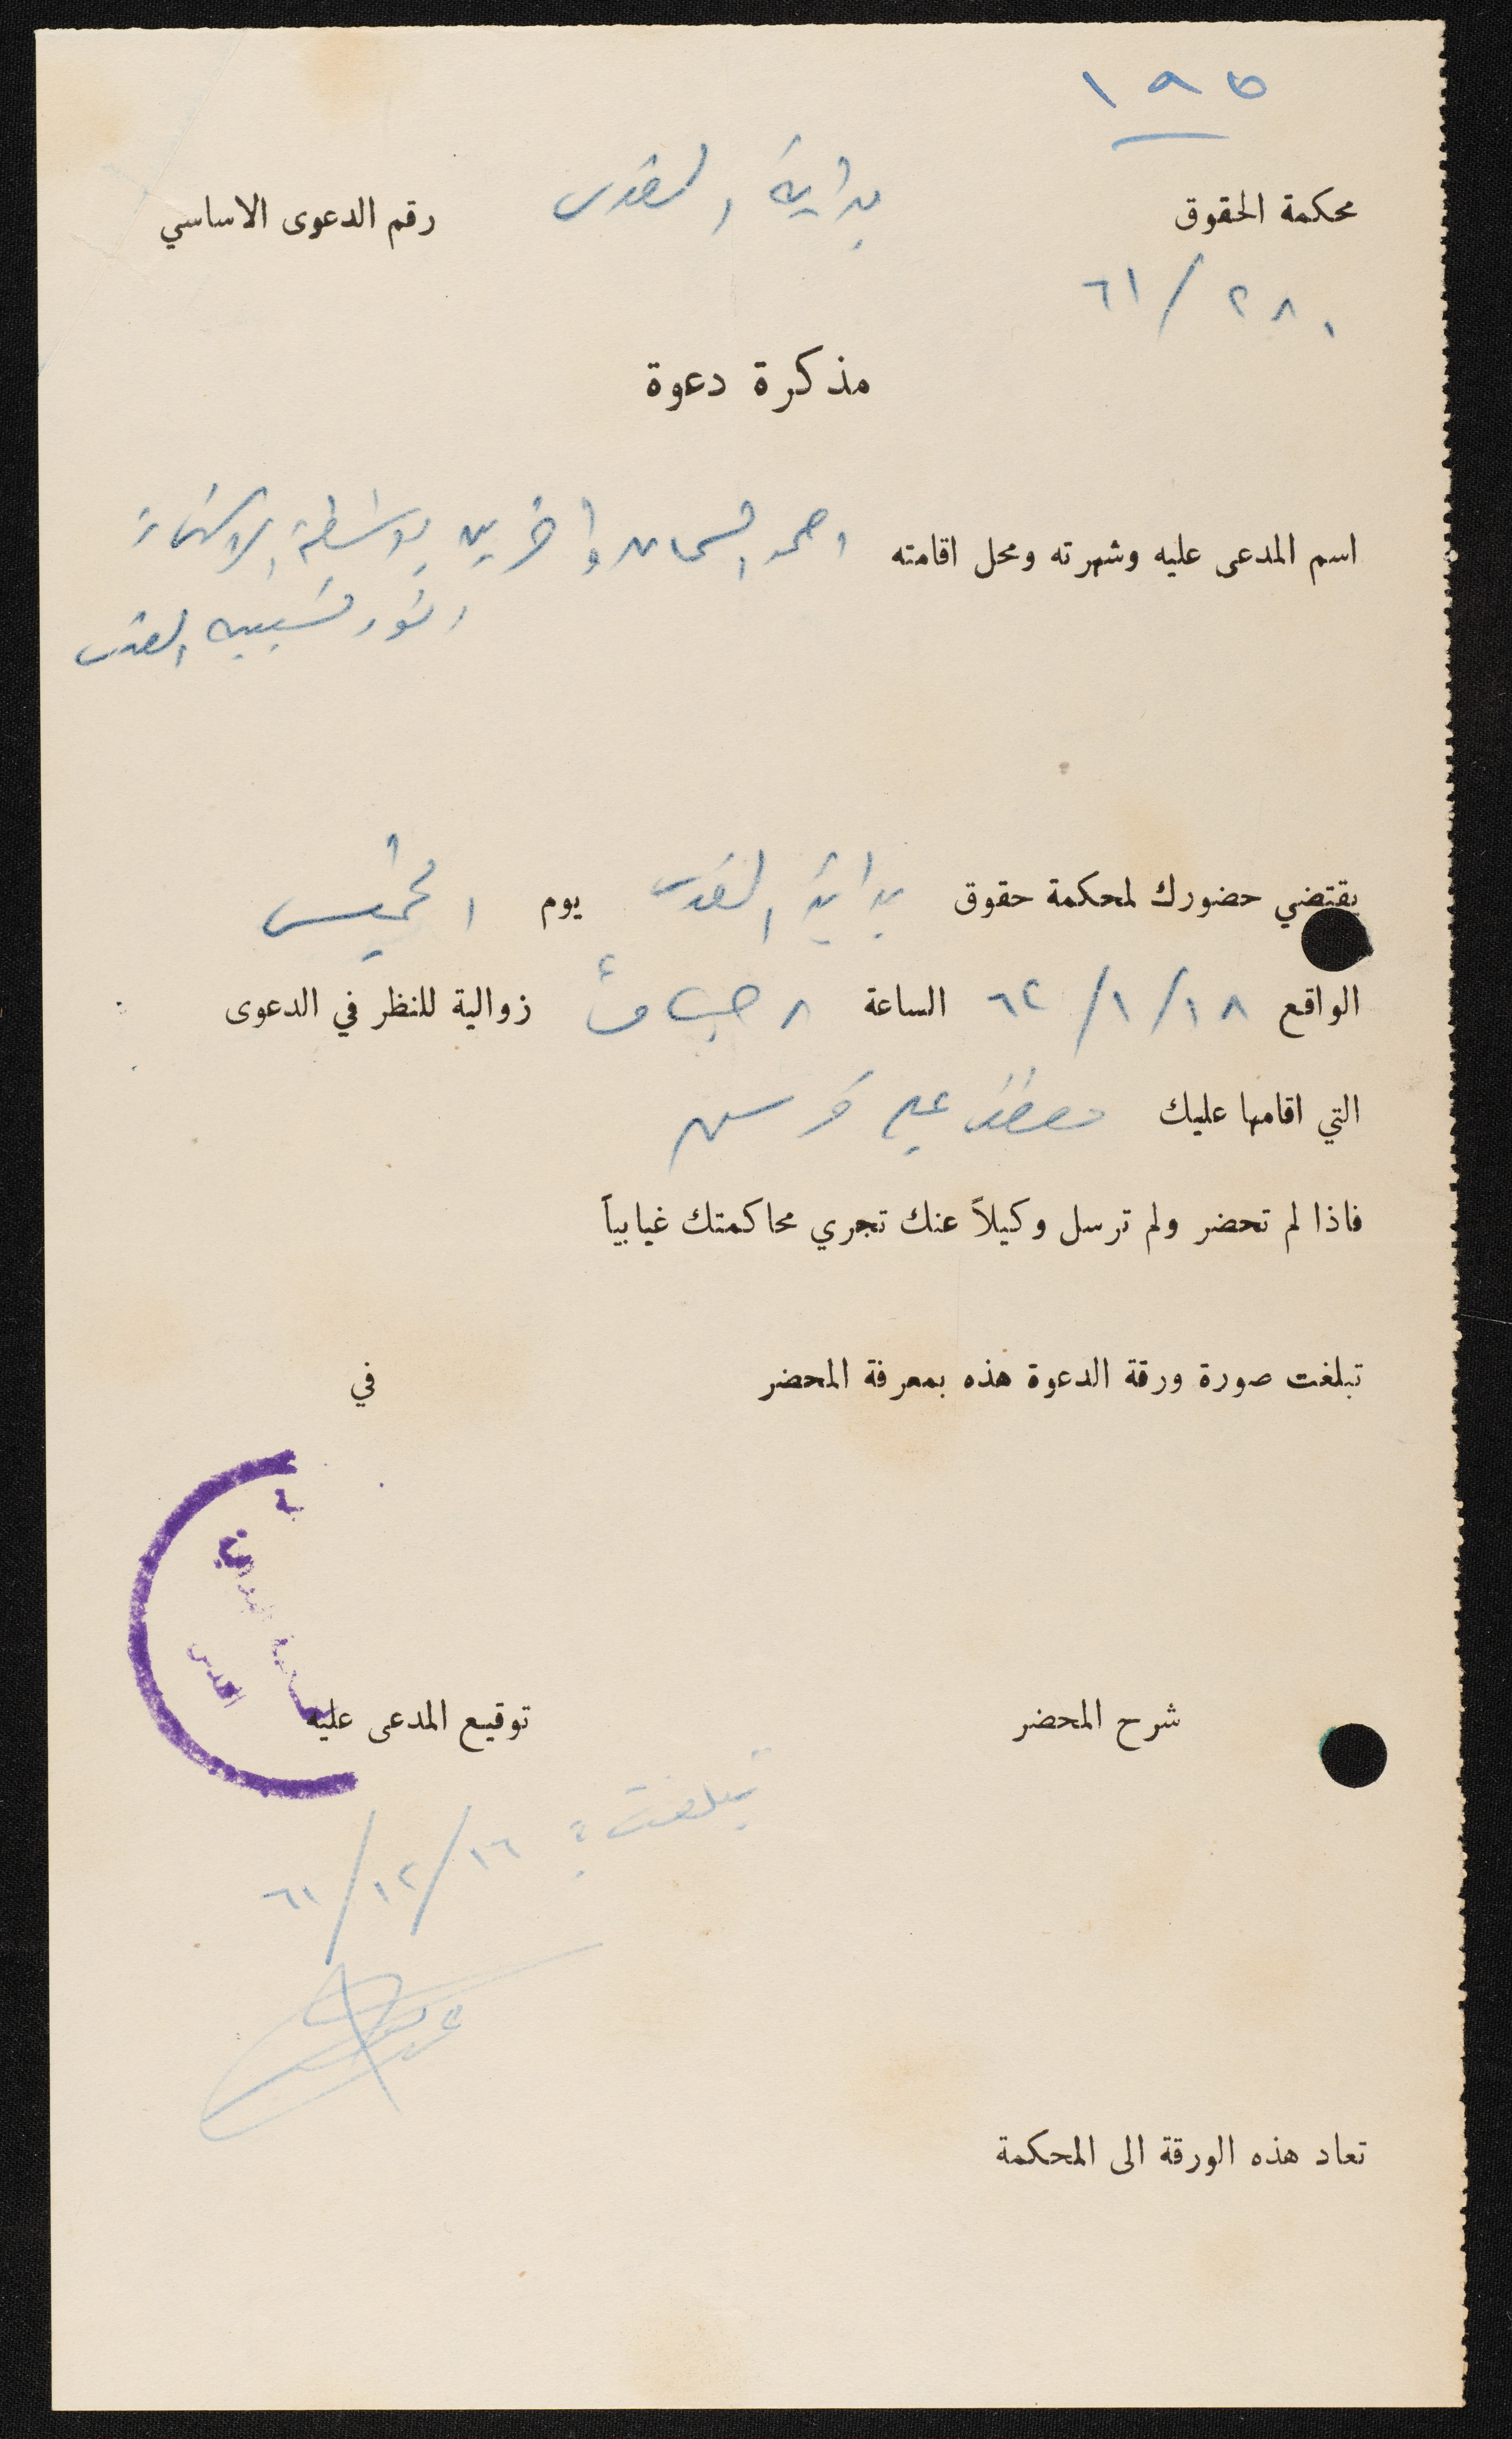 ١٩٥
محكمة الحقوق بداية القدس رقم الدعوى الاساسي
٢٨٠ / ٦١
مذكرة دعوة
اسم المدعى عليه وشهرته ومحل اقامته احمد السمان واخرين بواسطة الاستاذ
انور نسيبه القدس
يقتضي حضورك لمحكمة حقوق بداية القدس يوم الخميس
الواقع ١٨ / ١ / ٦٢ الساعة ٨ صباحاً زوالية للنظر في الدعوى
التي اقامها عليك مصطفى علي
فاذا لم تحضر ولم ترسل وكيلاً عنك تجري محاكمتك غيابياً
تبلغت صورة ورقة الدعوة هذه بمعرفة المحضر في
القدس
شرح المحضر توقيع المدعى عليه
تبلغت ١٦ / ١٢ / ٦١
تعاد هذه الورقة الى المحكمة